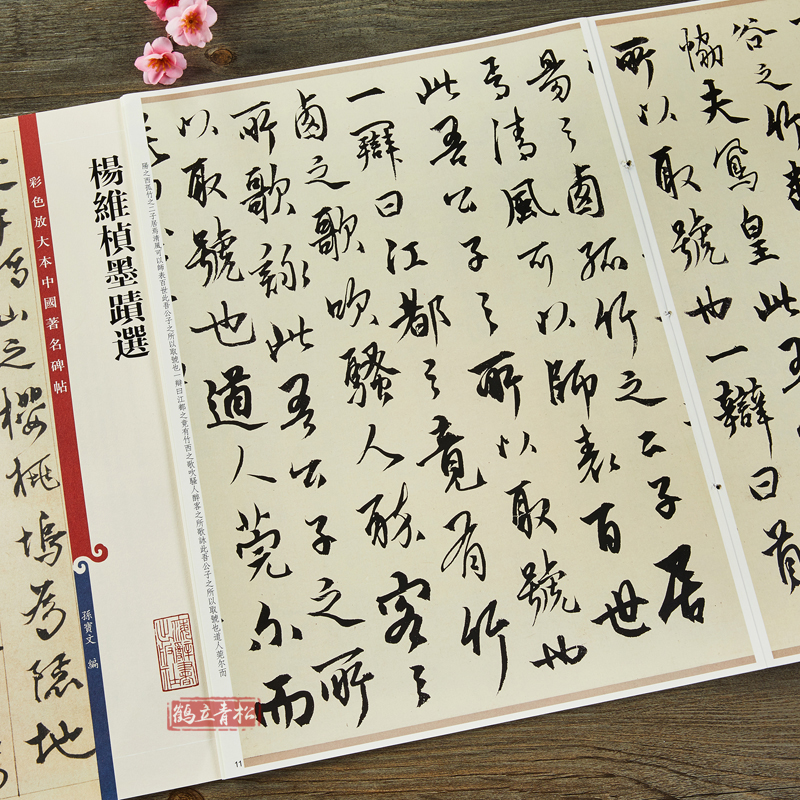 彩色放大本中國著名碑帖
楊維楨墨蹟選
孫寶文 編
山之櫻桃塢為隱地
谷之竹
協夫鳳皇此
所以取號也一辯曰首
昜之鹵孤竹之二子居
焉清風可以師表百世
此吾公子之所以取號也
一辯曰江都之竟有竹
鹵之歌吹騷人醉客之
所歌詠此吾公子之所
以取號也道人莞尔而
陽之西孤竹之二子居焉清風可以師表百世此吾公子之所以取號也一辯曰江都之竟有竹西之歌吹騷人醉客之所歌詠此吾公子之所以取號也道人莞尔而
11
鹤立青松